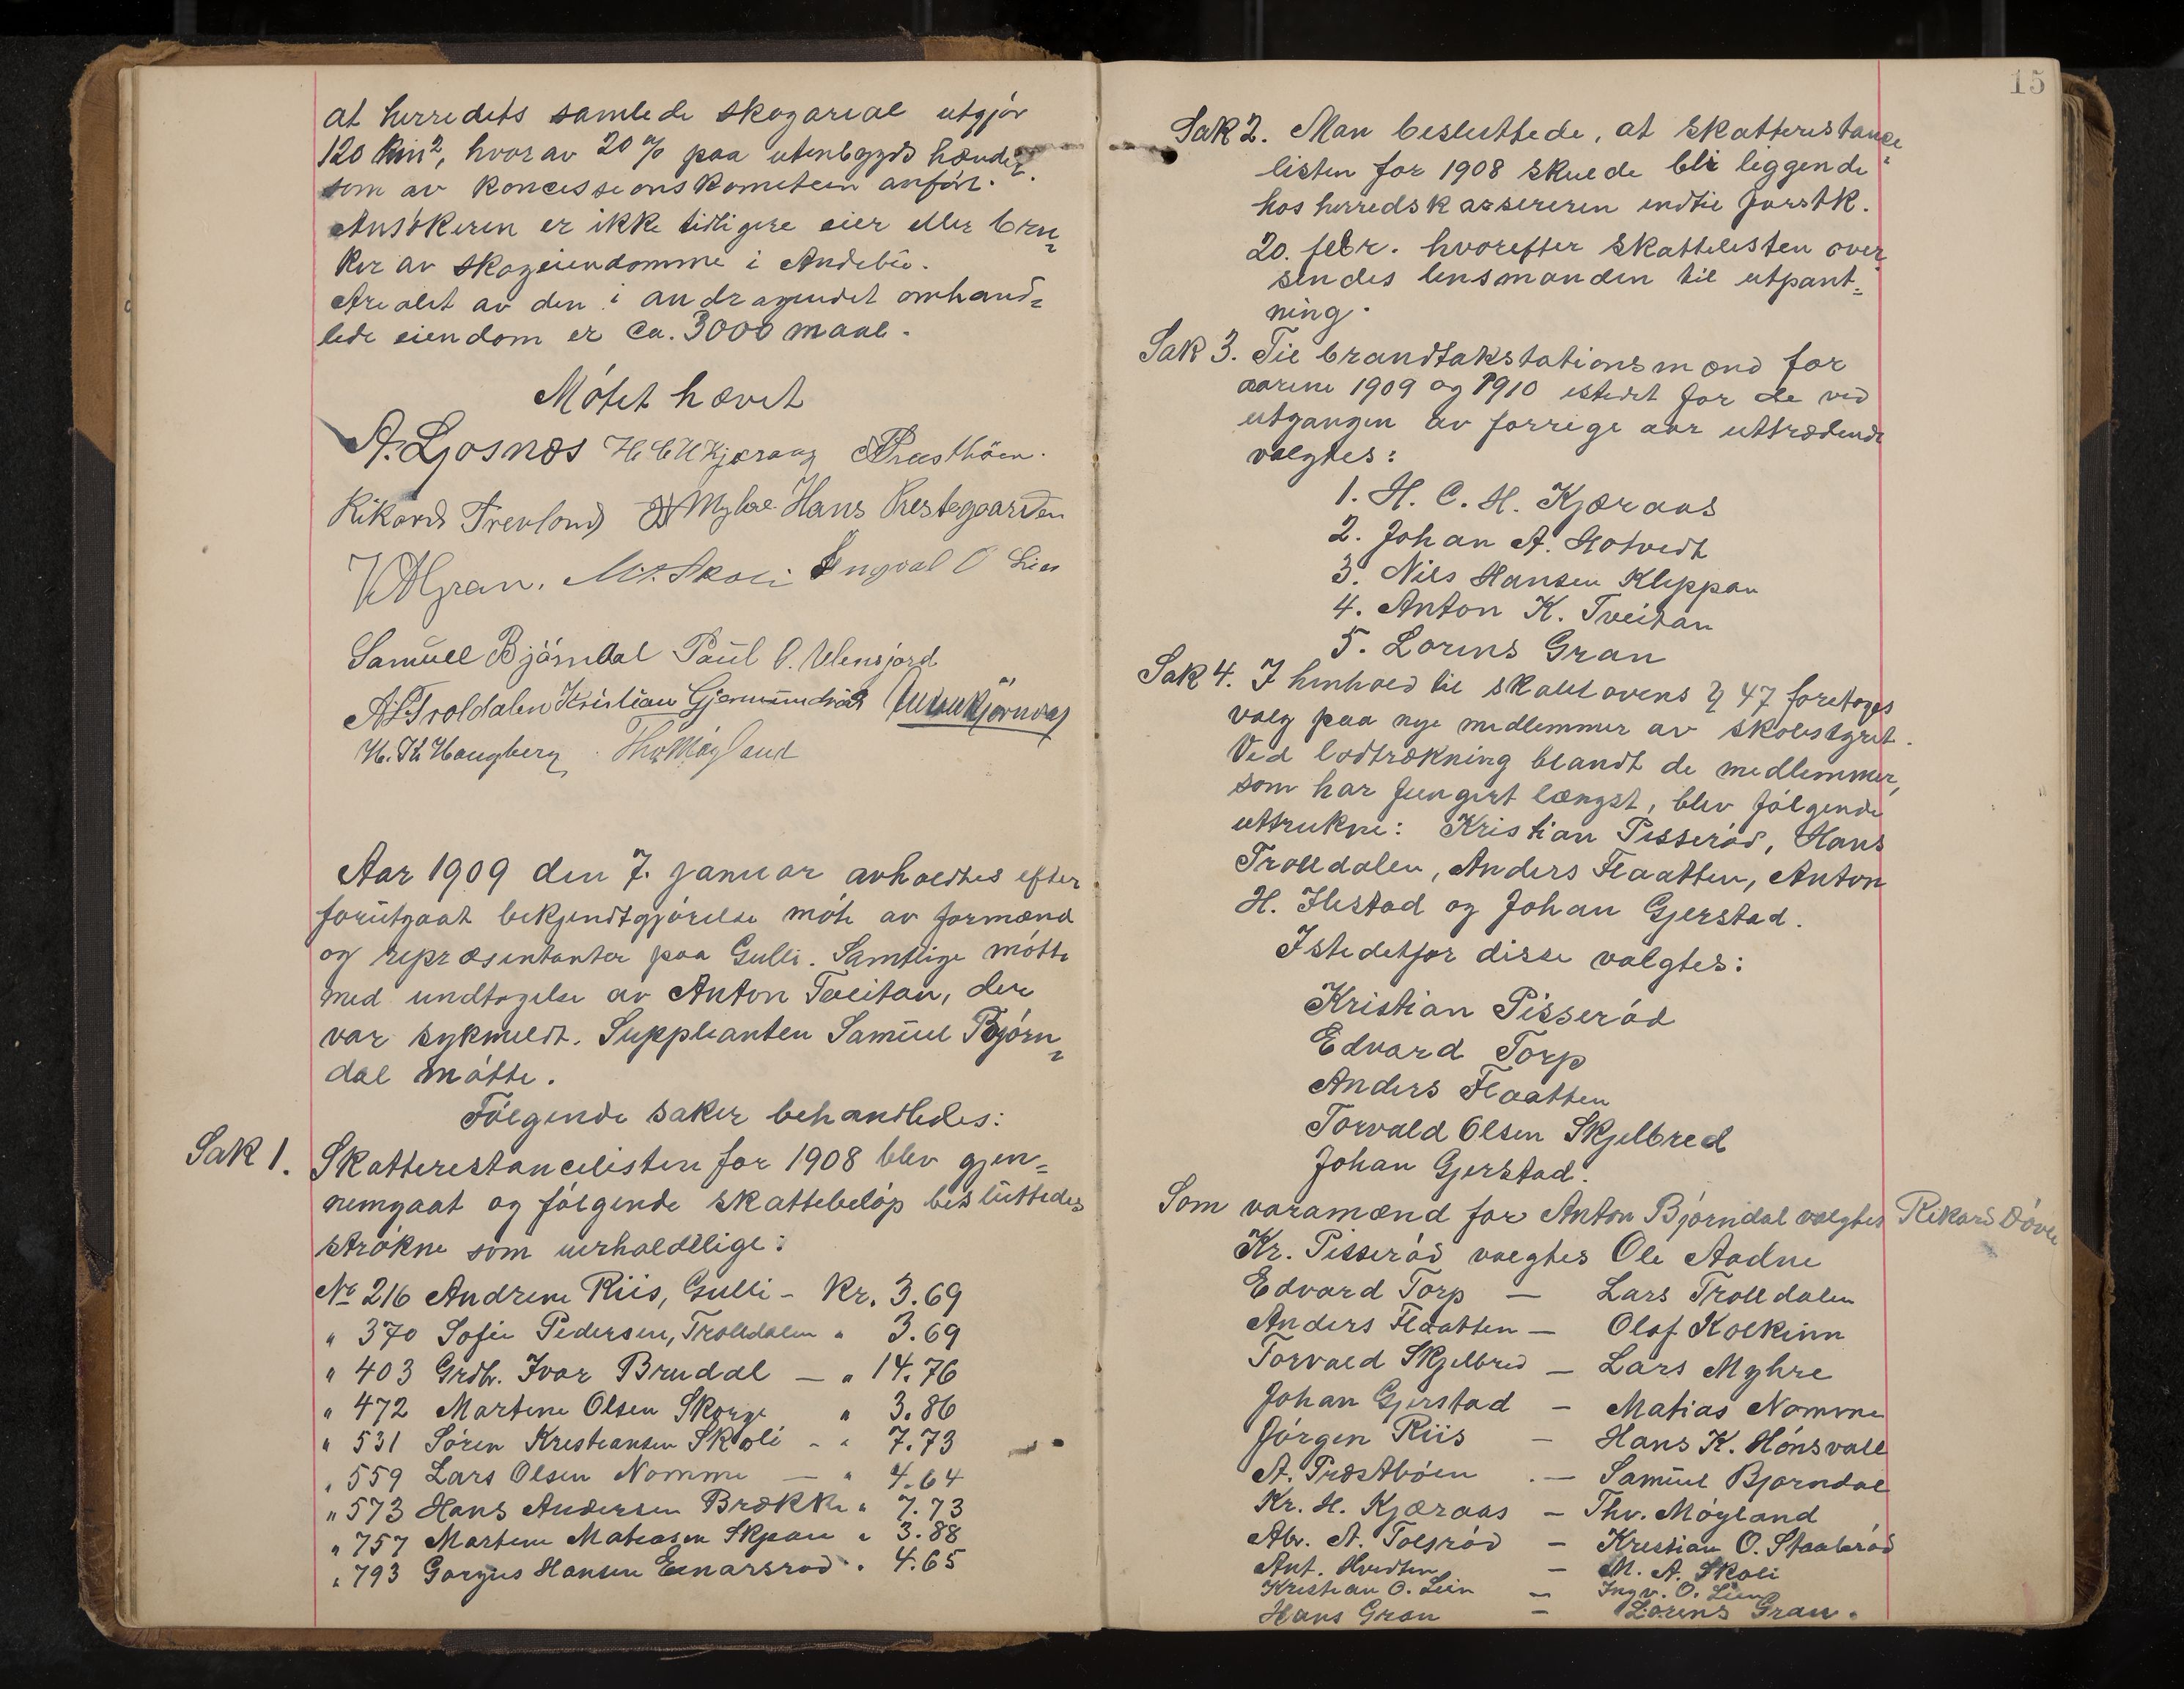 at herredets samlede skogareal utgjör
120 km², hvorav 20 % paa utenbygds hænder
som av koncessionskomiteen anfört.
Ansökeren er ikke tidligere eier eller bru=
ker av skogeiendomme i Andebu.
Arealet av den i andragendet omhand=
lede eiendom er ca. 3000 maal.
Mötet hævet
A. Ljosnæs H C H Kjæraas A Præsthöen.
Rikard Trevland Myhre Hans Prestegaarden
Gran. M. A. Skoli Ingval O Lien
Samuel Björndal Paul O. Ulensjord
A L Troldalen Kristian Gjermundröd Anton Björndal
H. Th Haugberg Thv Möyland
Aar 1909 den 7. januar avholdtes efter
forutgaat bekjendtgjörelse möte av formænd
og repræsentanter paa Gulli. Samtlige mötte
med undtagelse av Anton Tveitan, der
var sykmeldt. Suppleanten Samuel Björn=
dal mötte.
Fölgende saker behandledes:
Sak 1. Skatterestancelisten for 1908 blev gjen=
nemgaat og fölgende skattebelöp besluttedes
strökne som uerholdelige:
No 216 Andrene Riis, Gulli - Kr. 3.69
" 370 Sofie Pedersen, Trolldalen " 3.69
" 403 Grdbr. Ivar Brudal — " 14.76
" 472 Martine Olsen Skorge " 3.86
" 531 Sören Kristiansen Skoli - " 7.73
" 559 Lars Olsen Nomme — " 4.64
" 573 Hans Andersen Brække " 7.73
" 757 Martin Matiasen Skjeau " 3.88
" 793 Gorgus Hansen Einarsrod " 4.65
15
Sak 2. Man besluttede, at skatterestance=
listen for 1908 skulde bli liggende
hos herredskassereren indtil førstk.
20. febr. hvorefter skattelisten over=
sendes lensmanden til utpant=
ning.
Sak 3. Til brandtakstationsmænd for
aarene 1909 og 1910 istedet for de ved
utgangen av forrige aar uttrædende
valgtes:
1. H. C. H. Kjæraas
2. Johan A. Hotvedt
3. Nils Hansen Kleppan
4. Anton K. Tveitan
5. Lorens Gran
Sak 4. I henhold til skolelovens § 47 foretoges
valg paa nye medlemmer av skolestyret.
Ved lodtrækning blandt de medlemmer,
som har fungert længst, blev fölgende
uttrukne: Kristian Pisseröd, Hans
Trolldalen, Anders Flaatten, Anton
H. Ilestad og Johan Gjerstad.
Istedetfor disse valgtes:
Kristian Pisseröd
Edvard Torp
Anders Flaatten
Torvald Olsen Skjelbred
Johan Gjerstad.
Som varamænd for Anton Björndal valgtes Rikard Dövle
Kr. Pisseröd valgtes Ole Aadne
Edvard Torp — Lars Trolldalen
Anders Flaatten — Olaf Kolkinn
Torvald Skjelbred — Lars Myhre
Johan Gjerstad - Matias Nomme
Jörgen Riis - Hans K. Hönsvall
A. Præstböen — Samuel Bjørndal
Kr. H. Kjæraas - Thv. Möyland
Abr. A. Tolsröd - Kristian O. Staaleröd
Ant. Hvidsten - M. A. Skoli
Kristian O. Lien - Ingv. O. Lien
Hans Gran - Lorens Gran.